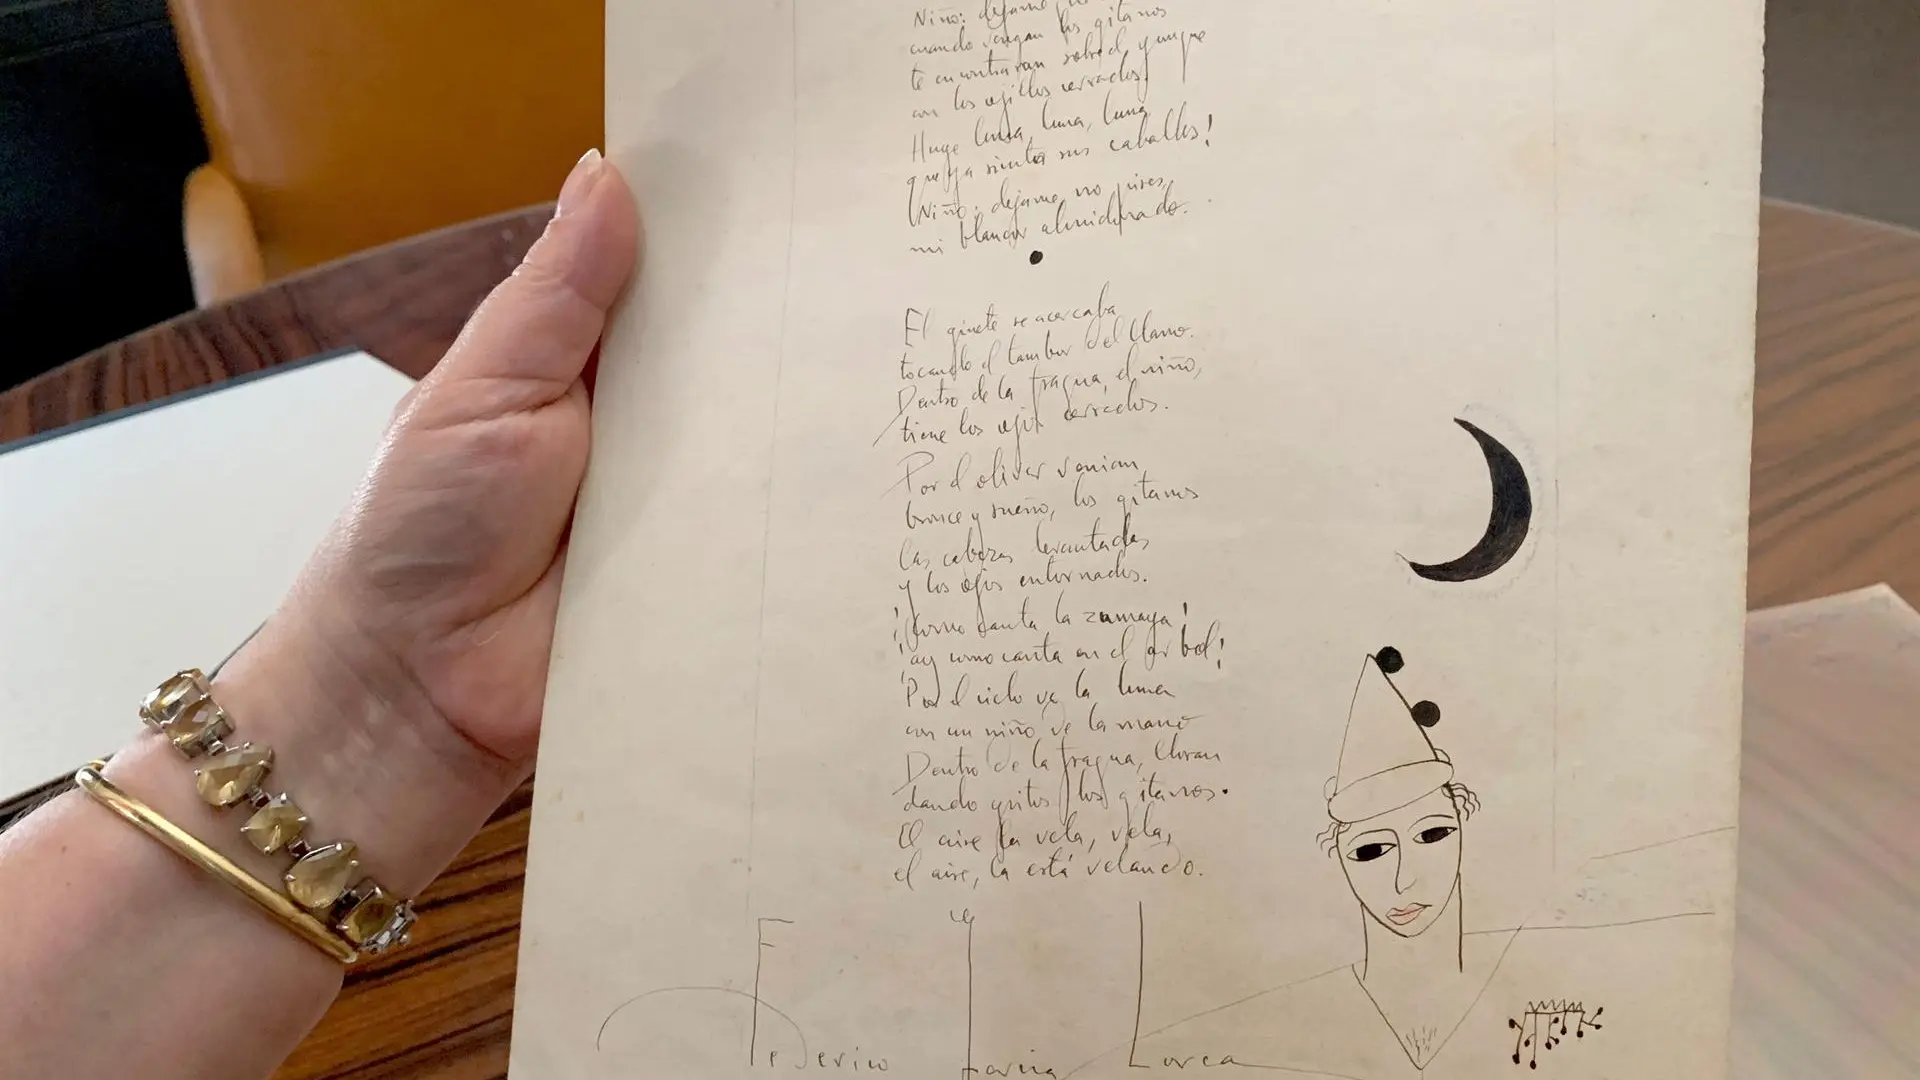 Niño: dejame
cuando vengan los gitanos
te encontraran sobre el yunque
con los ojillos cerrados.
Huye luna, luna, luna
que ya siento sus caballos!
Niño: dejame, no pises,
mi blancor almidonado.
El ginete se acercaba
tocando el tambor del llano.
Dentro de la fragua, el niño,
tiene los ojos cerrados.
Por el olivar venian,
bronce y sueño, los gitanos
las cabezas levantadas
y los ojos entornados.
¡Como canta la zumaya!
¡ay como canta en el arbol!
Por el cielo va la luna
con un niño de la mano
Dentro de la fragua, lloran
dando gritos los gitanos.
El aire la vela, vela,
el aire, la está velando.
Federico García Lorca